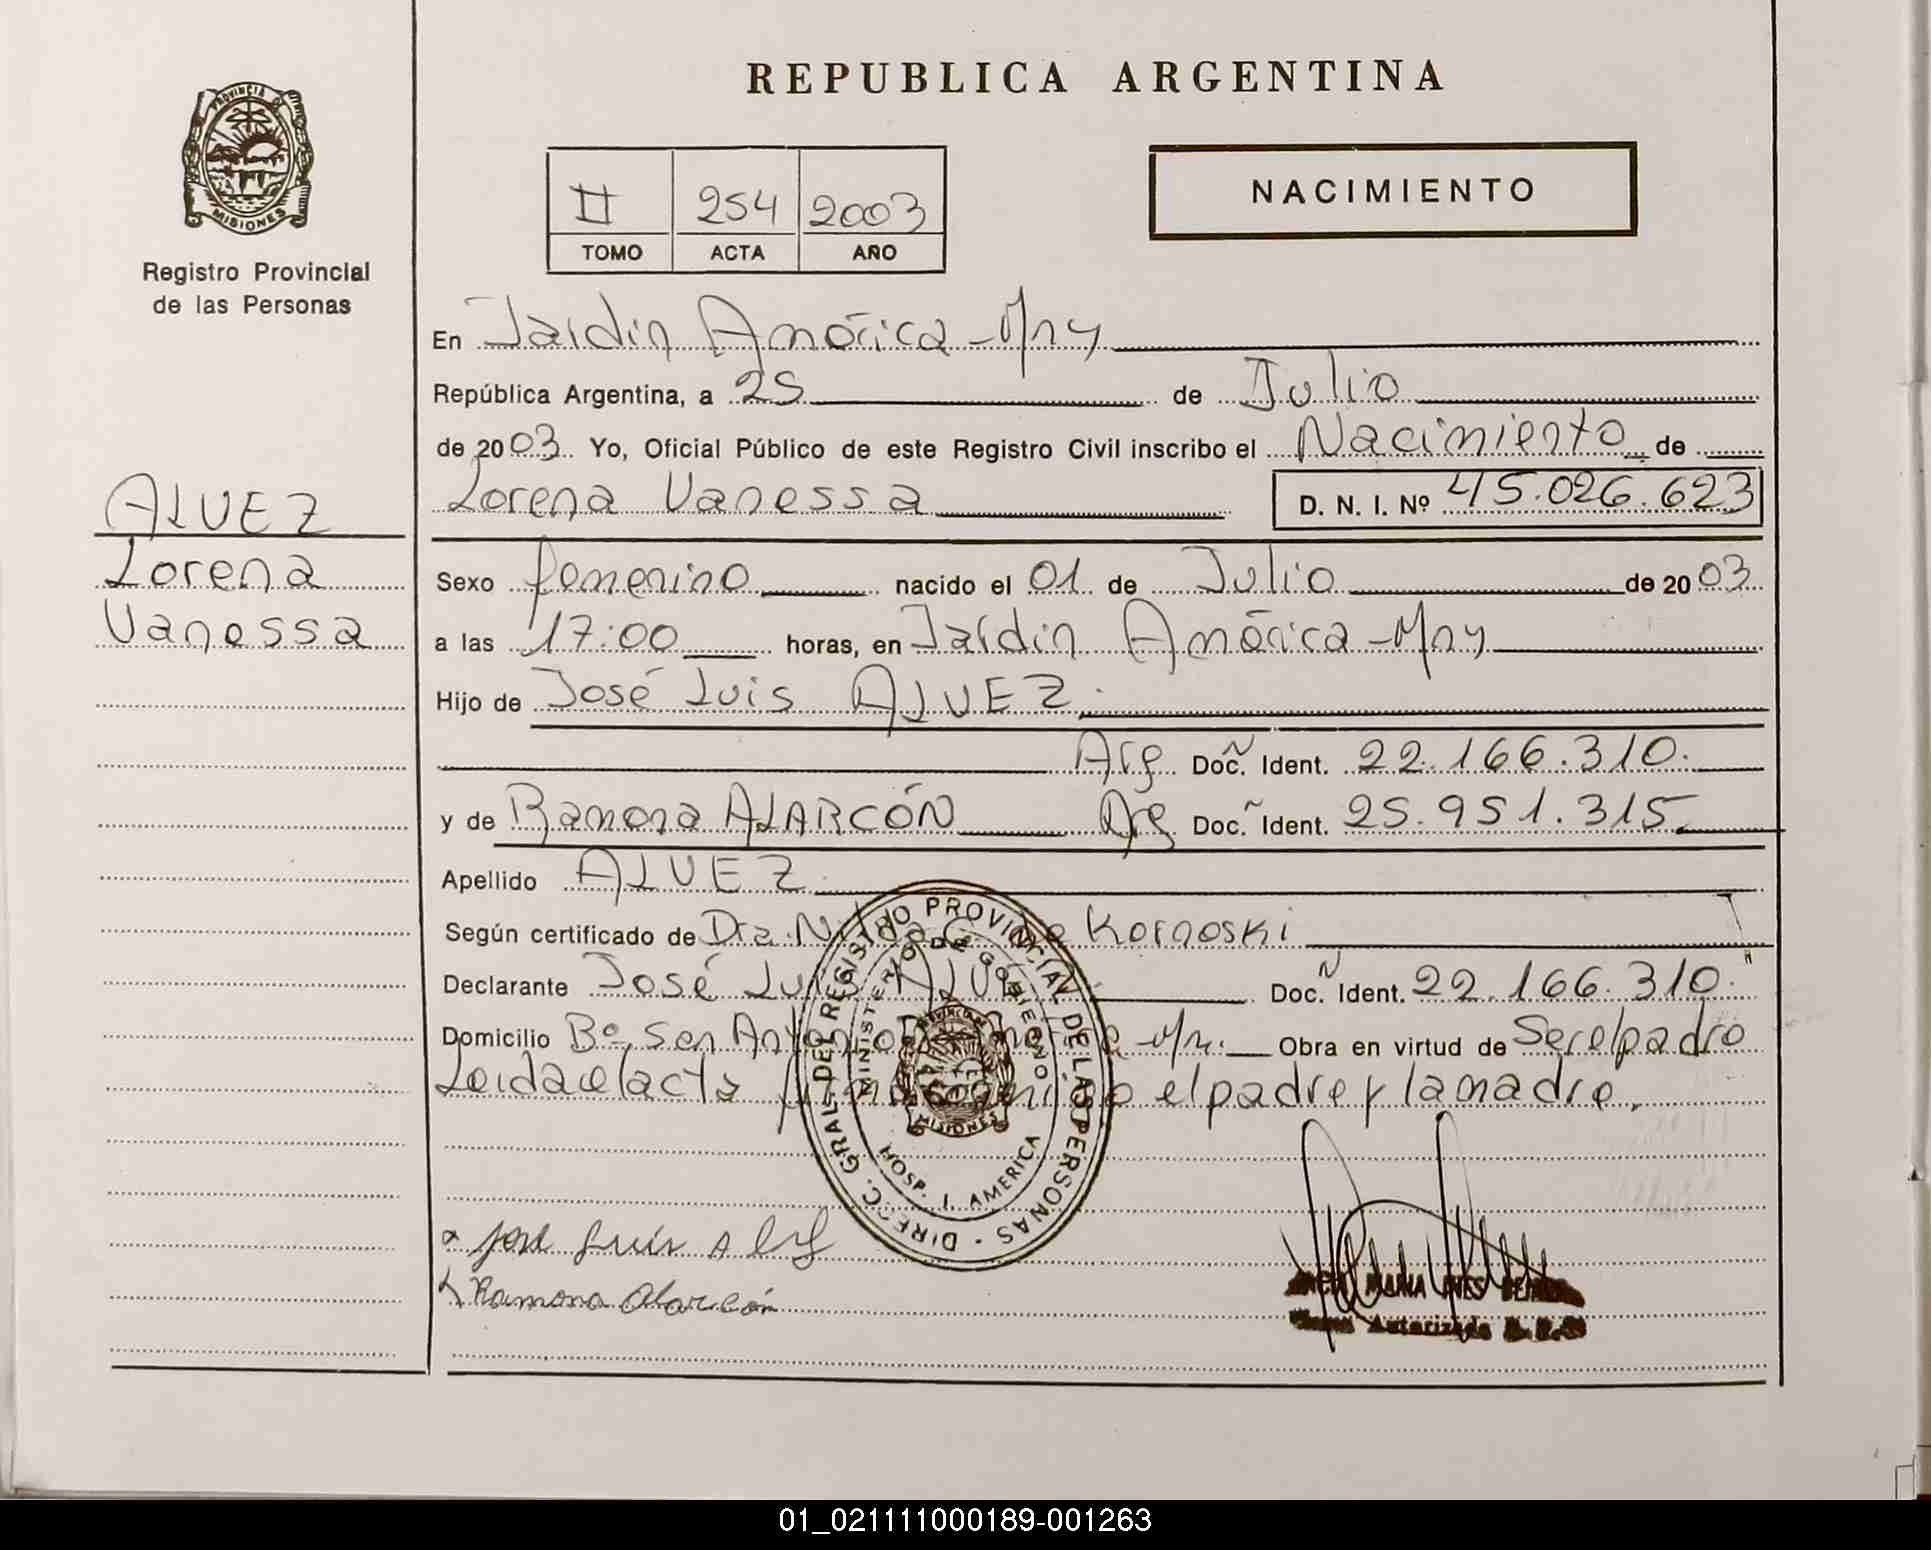 REPUBLICA ARGENTINA
PROVINCIA DE
MISIONES
Registro Provincial
de las Personas
II 254 2003
TOMO ACTA AÑO
NACIMIENTO
En Jardín América - Mnes
República Argentina, a 25 de Julio
de 2003 Yo, Oficial Público de este Registro Civil inscribo el Nacimiento de
Lorena Vanessa D. N. I. Nº 45.026.623
ALVEZ
Lorena
Vanessa
Sexo femenino nacido el 01 de Julio de 2003
a las 17:00 horas, en Jardín América - Mnes
Hijo de José Luis ALVEZ
Arg. Doc. Ident. 22.166.310.
y de Ramona ALARCÓN Arg. Doc. Ident. 25.951.315
Apellido ALVEZ
Según certificado de Dra. Kornoski
Declarante José Luis ALVEZ Doc. Ident. 22.166.310.
Domicilio Bº San Antonio Obra en virtud de Ser el padre
Leida el acta el padre y la madre.
DIREC. GRAL. DEL REGISTRO PROVINCIAL DE LAS PERSONAS
MINISTERIO DE GOBIERNO
MISIONES
HOSP. J. AMERICA
José Luis Alvez
Ramona Alarcón
MARIA INES
Autorizada
01_021111000189-001263